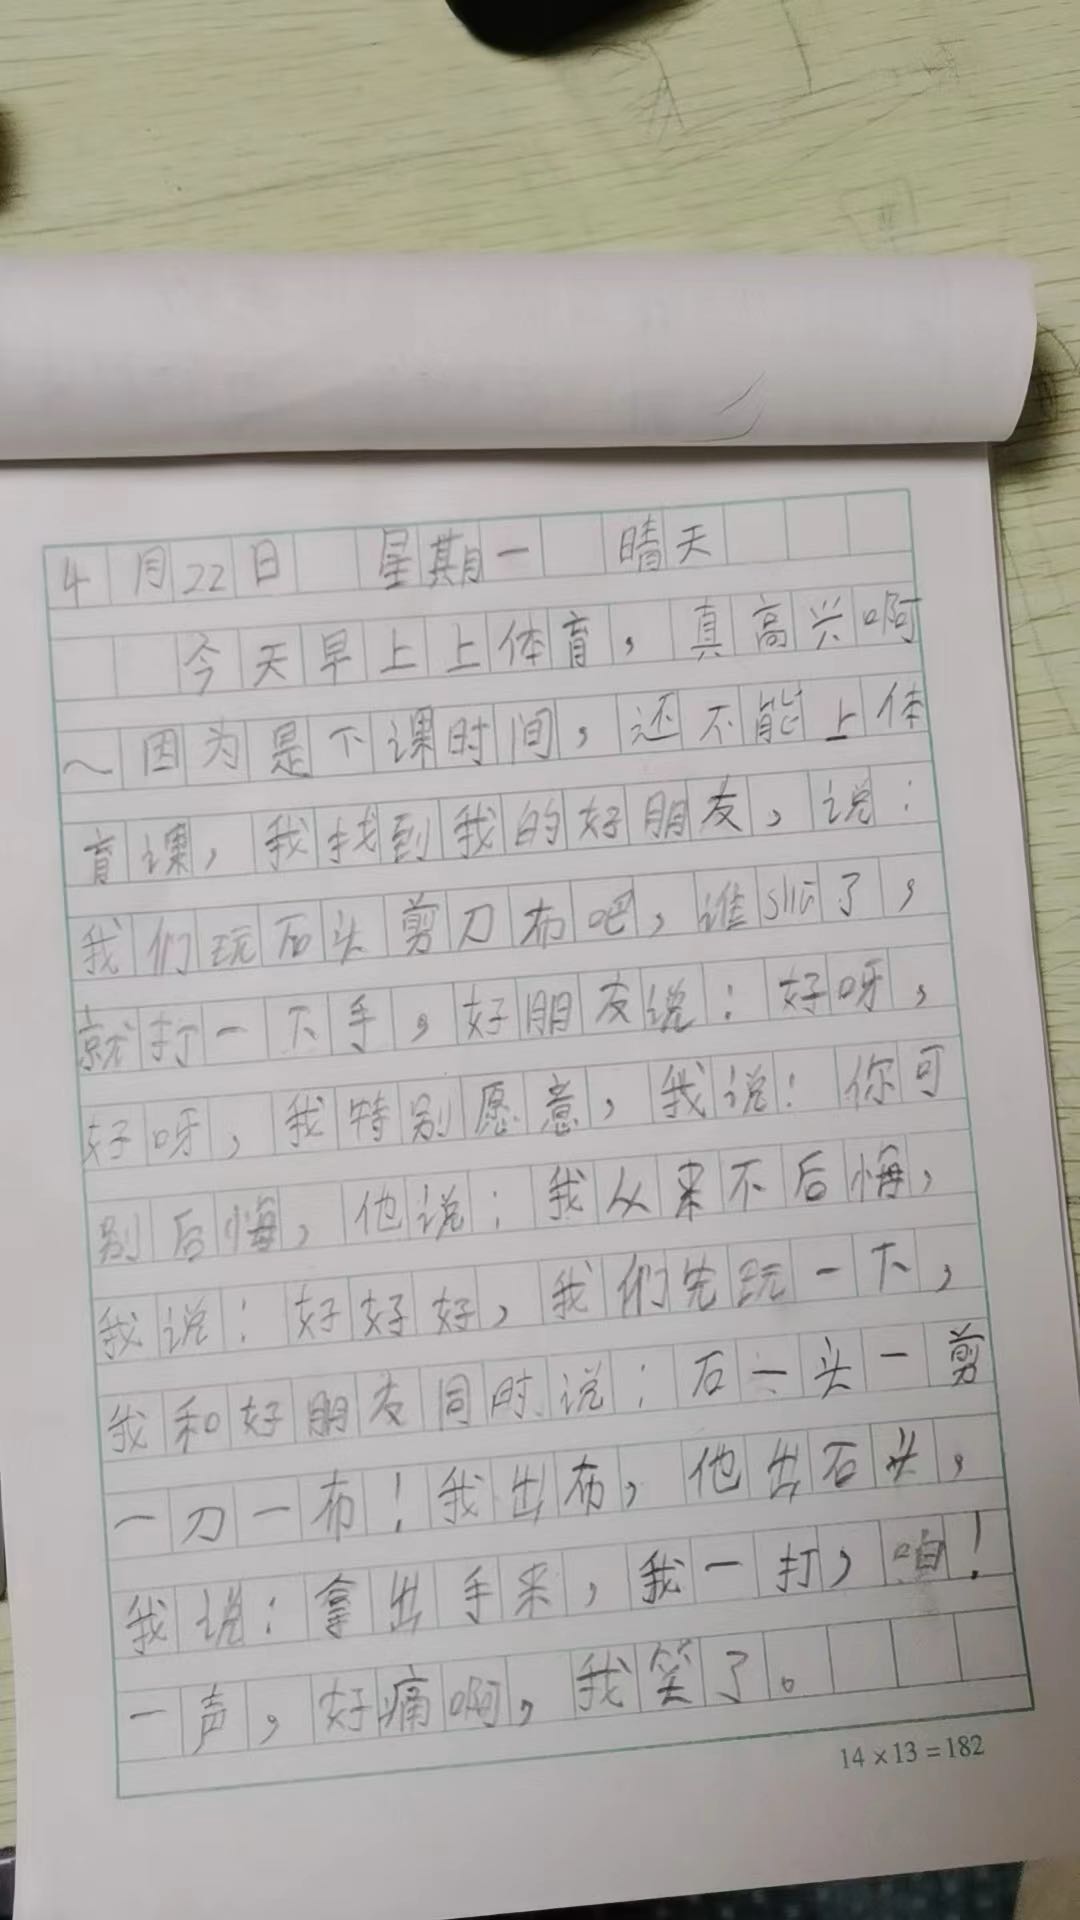 4月22日 星期一 晴天
今天早上上体育，真高兴啊
～因为是下课时间，还不能上体
育课，我找到我的好朋友，说：
我们玩石头剪刀布吧，谁shū了，
就打一下手，好朋友说：好呀，
好呀，我特别愿意，我说：你可
别后悔，他说：我从来不后悔，
我说：好好好，我们先玩一下，
我和好朋友同时说：石一头一剪
一刀一布！我出布，他出石头，
我说：拿出手来，我一打，咱！
一声，好痛啊，我笑了。
14×13=182